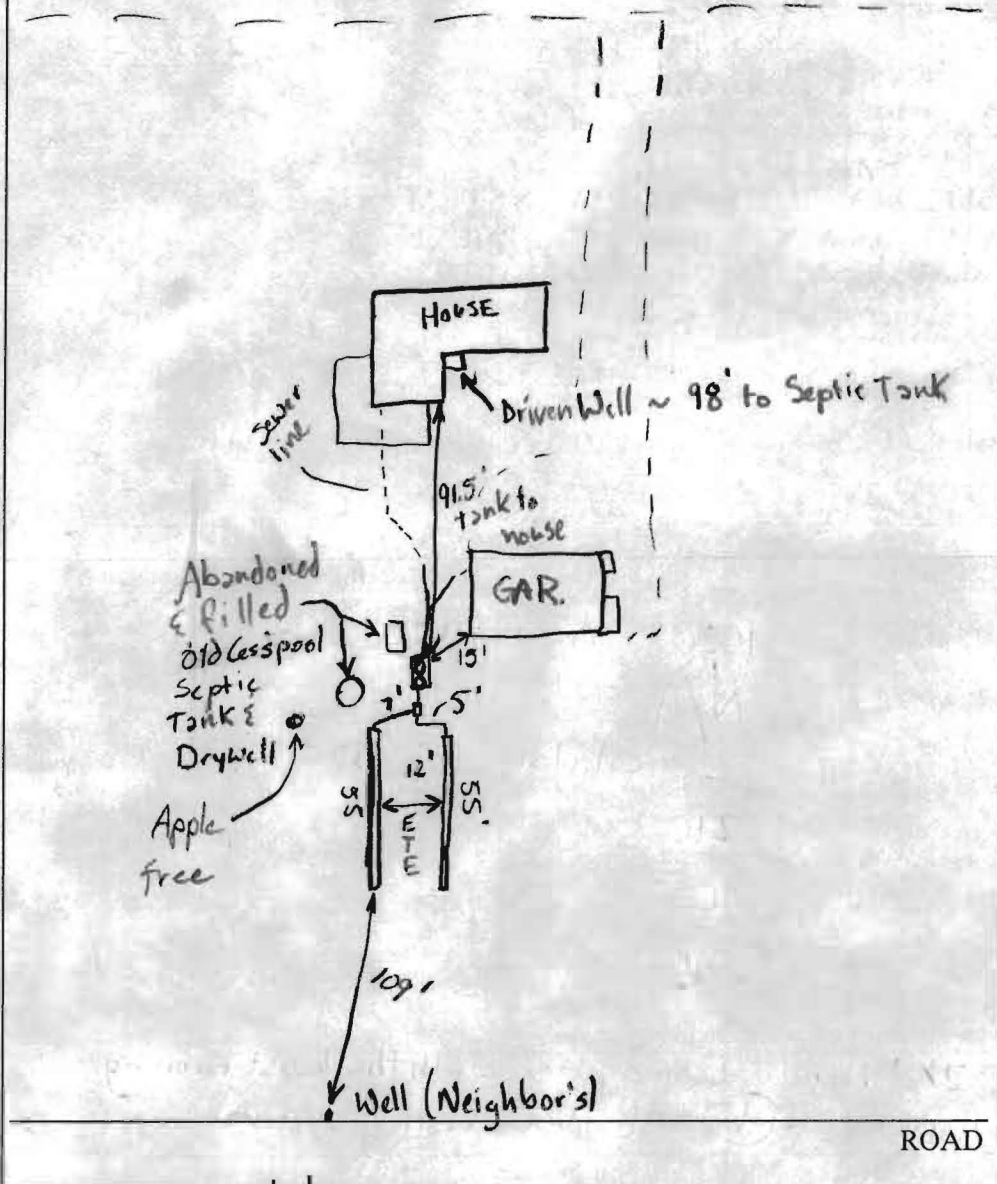 HOUSE
Driven Well ~ 98' to Septic Tank
Sewer
line
91.5'
tank to
house
GAR.
Abandoned
& filled
Old Cesspool
Septic
Tank &
Drywell
15'
7'
5'
12'
55'
55'
ETE
Apple
tree
109'
Well (Neighbor's)
ROAD